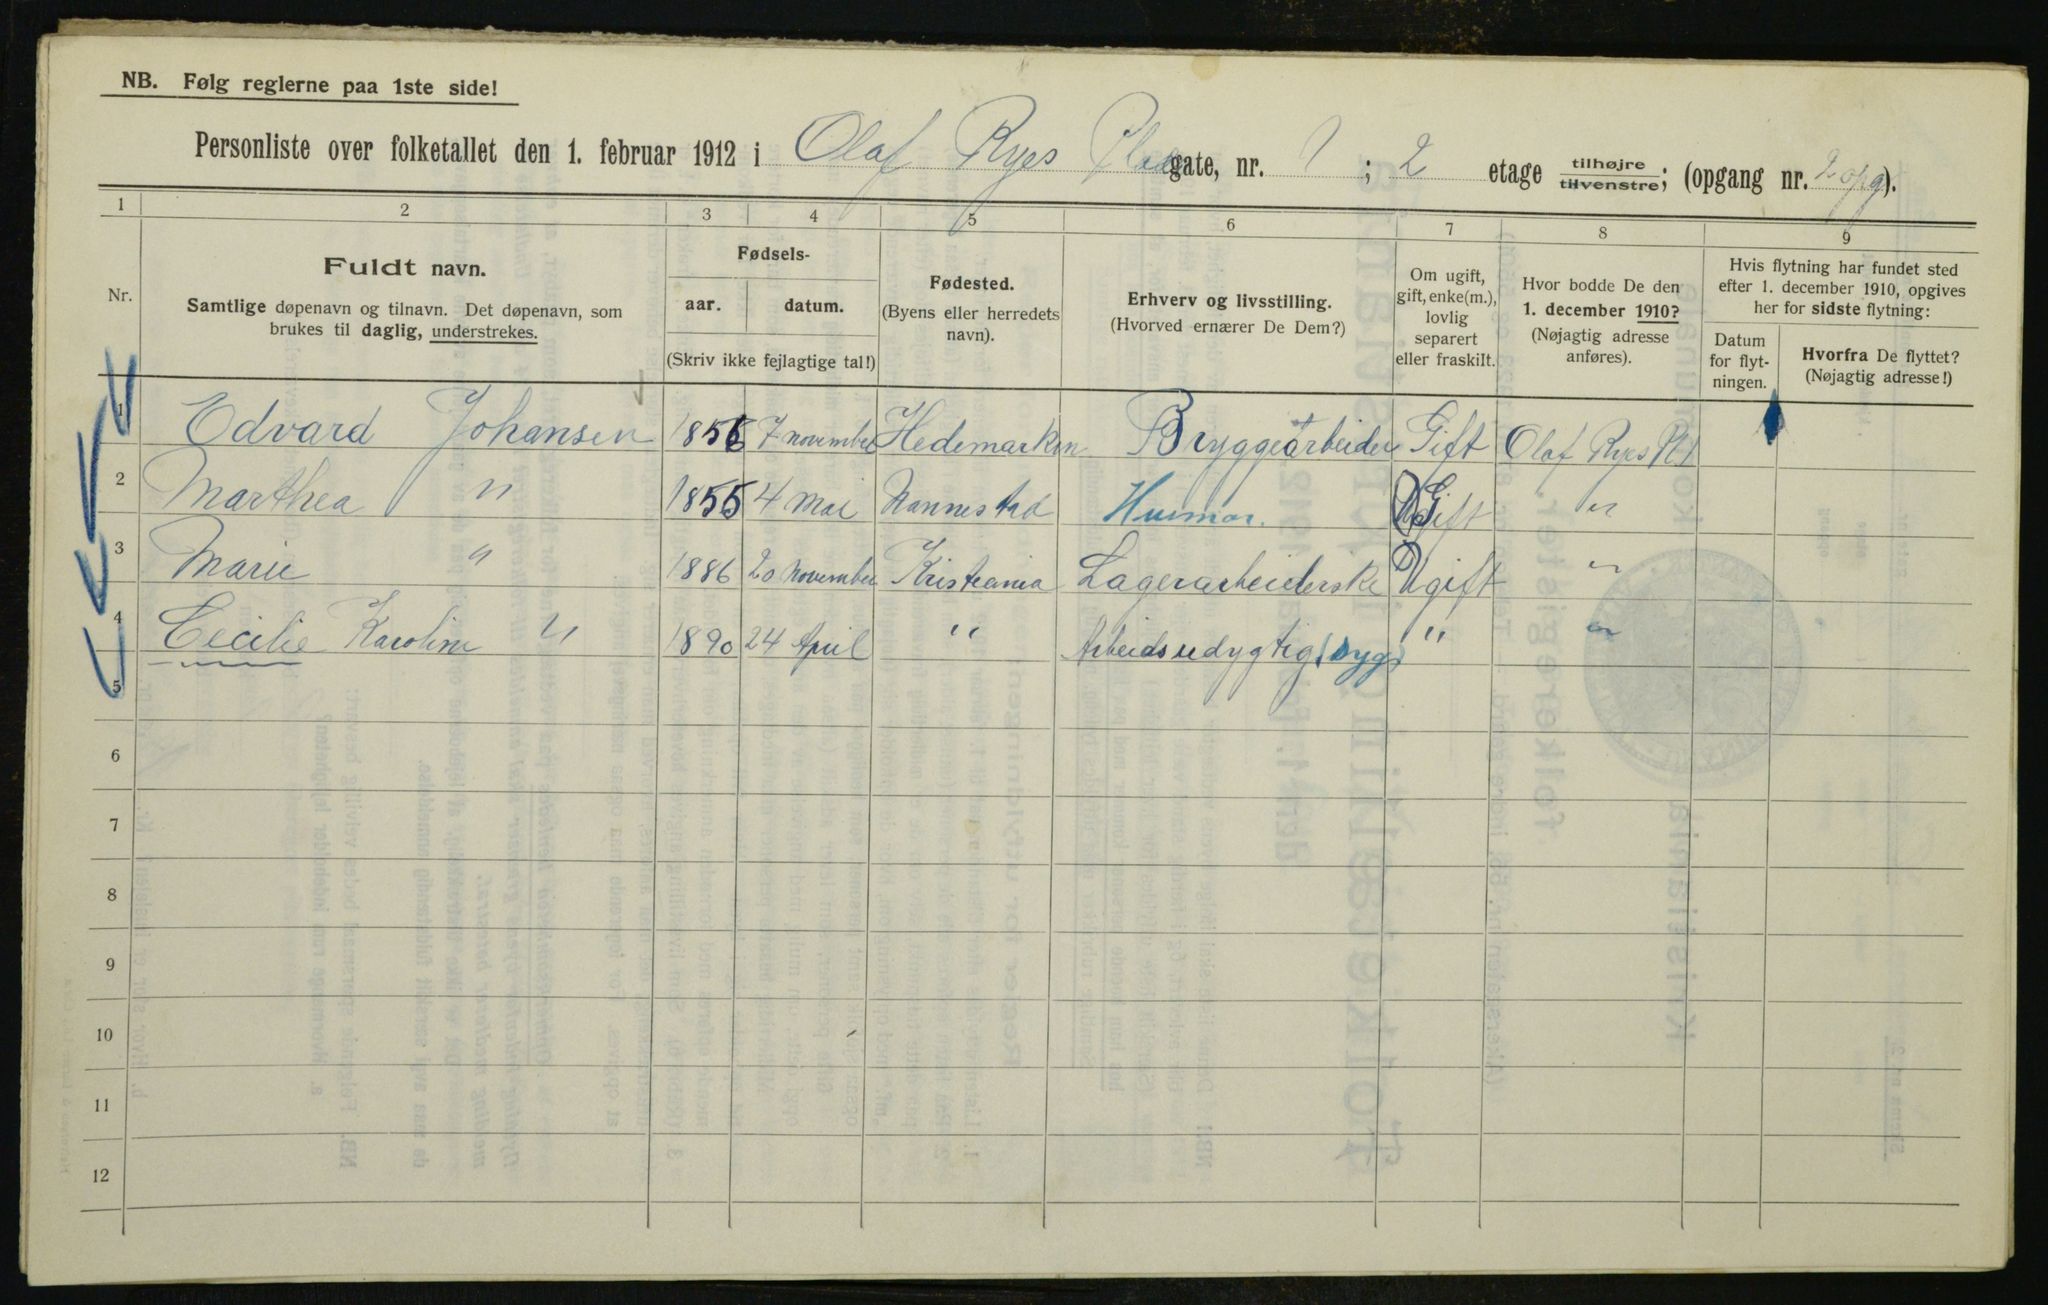 NB. Følg reglerne paa 1ste side!
Personliste over folketallet den 1. februar 1912 i Olaf Ryes Plads gate, nr. 1 ; 2 etage tilhøjre / tilvenstre; (opgang nr. 2 opg).
1 2 3 4 5 6 7 8 9
Nr.
Fuldt navn.
Samtlige døpenavn og tilnavn. Det døpenavn, som
brukes til daglig, understrekes.
Fødsels-
aar. datum.
(Skriv ikke fejlagtige tal!)
Fødested.
(Byens eller herredets
navn).
Erhverv og livsstilling.
(Hvorved ernærer De Dem?)
Om ugift,
gift, enke(m.),
lovlig
separert
eller fraskilt.
Hvor bodde De den
1. december 1910?
(Nøjagtig adresse
anføres).
Hvis flytning har fundet sted
efter 1. december 1910, opgives
her for sidste flytning:
Datum
for flyt-
ningen.
Hvorfra De flyttet?
(Nøjagtig adresse!)
1 Edvard Johansen 1856 7 november Hedemarken Bryggearbeider Gift Olaf Ryes Pl 1
2 Marthea " 1855 4 Mai Nannestad Husmor. Gift "
3 Marie " 1886 20 November Kristiania Lagerarbeiderske Ugift "
4 Cecilie Karoline " 1890 24 April " Arbeidsudygtig (syg) " "
5
6
7
8
9
10
11
12